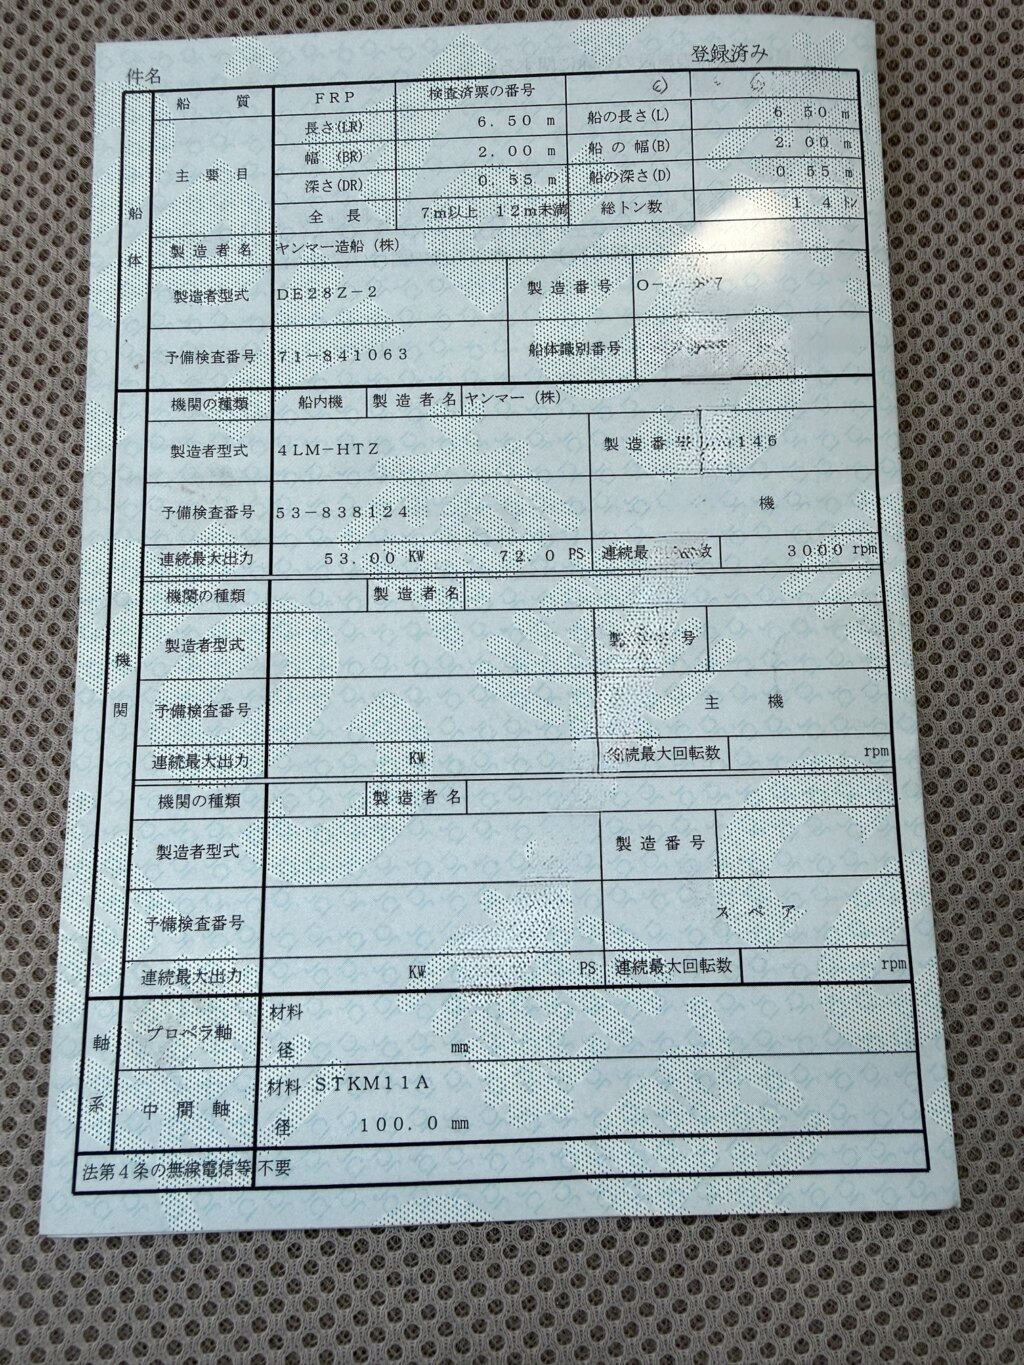 件名 登録済み
船質 FRP 検査済票の番号
主要目 長さ(LR) 6.50 m 船の長さ(L) 6.50 m
幅 (BR) 2.00 m 船の幅(B) 2.00 m
深さ(DR) 0.55 m 船の深さ(D) 0.55 m
全長 7m以上 12m未満 総トン数 1.4トン
船体
製造者名 ヤンマー造船(株)
製造者型式 DE28Z-2 製造番号
予備検査番号 71-841063 船体識別番号
機関の種類 船内機 製造者名 ヤンマー(株)
製造者型式 4LM-HTZ 製造番号 146
予備検査番号 53-838124 機
連続最大出力 53.00 KW 72.0 PS 連続最 数 3000 rpm
機関の種類 製造者名
製造者型式 製 号
機関
予備検査番号 主機
連続最大出力 KW 連続最大回転数 rpm
機関の種類 製造者名
製造者型式 製造番号
予備検査番号 スペア
連続最大出力 KW PS 連続最大回転数 rpm
軸系
プロペラ軸 材料
径 mm
中間軸 材料 STKM11A
径 100.0 mm
法第4条の無線電信等 不要